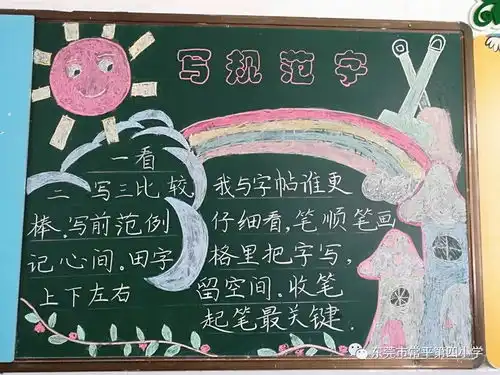 写规范字
一看
二写三比较
棒。写前范例
记心间。田字
上下左右
我与字帖谁更
仔细看，笔顺笔画
格里把字写，
留空间。收笔
起笔最关键.
东莞市常平第四小学